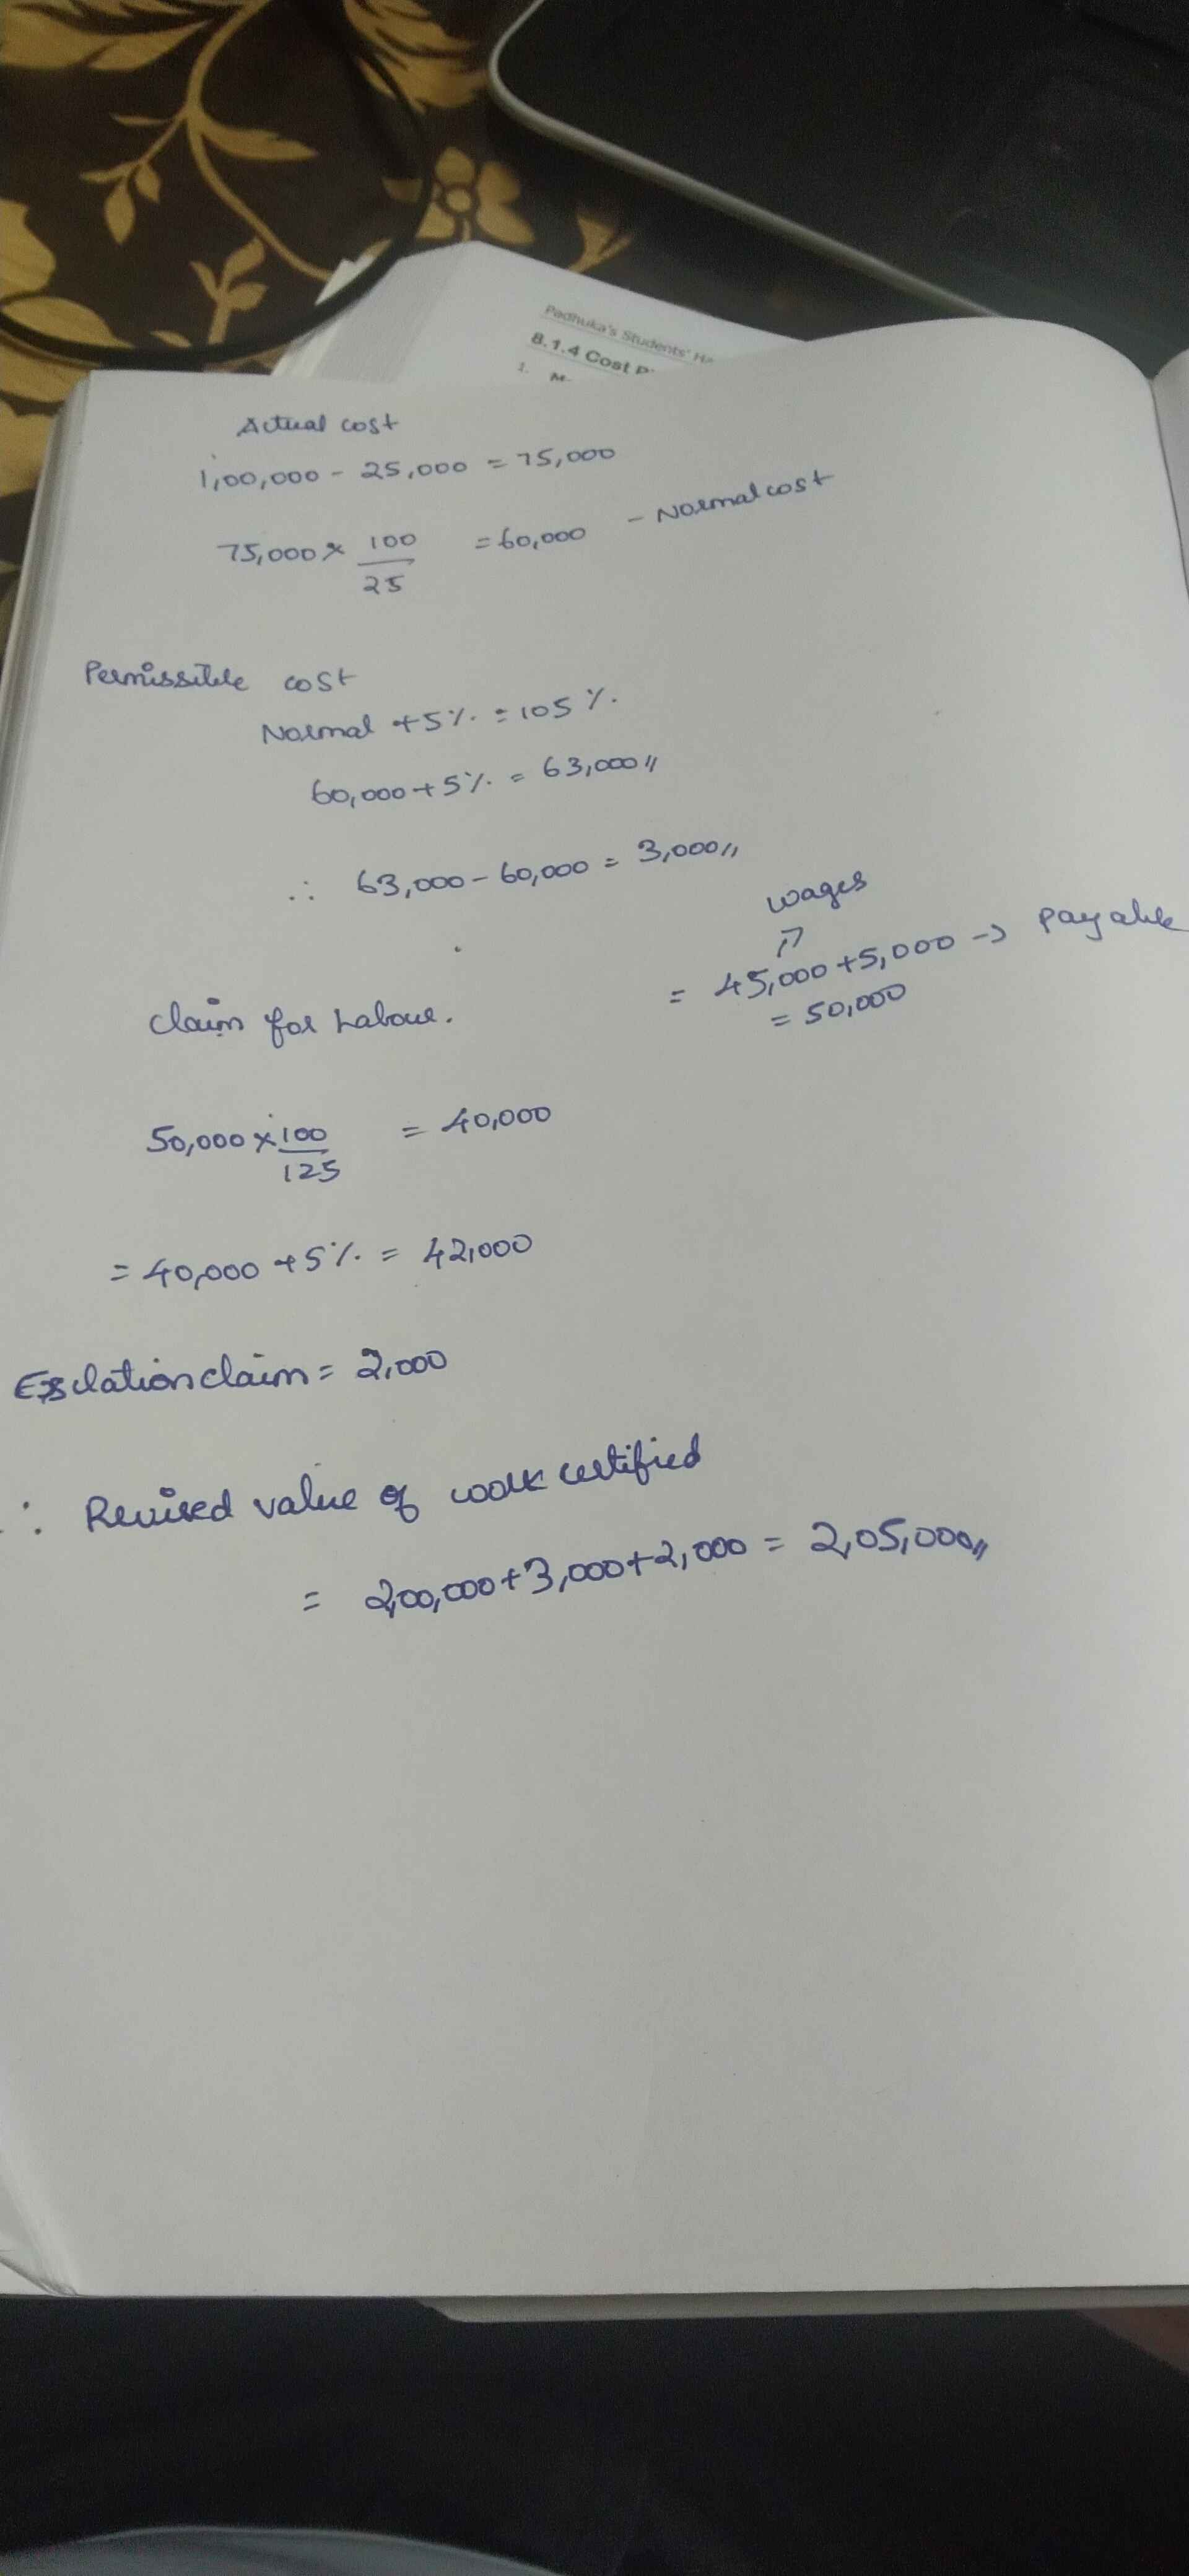 Padhuka's Students' Ha
8.1.4 Cost P
1. M
Actual cost
1,00,000 - 25,000 = 75,000
75,000 x 100/25 = 60,000 - Normal cost
Permissible cost
Normal + 5% = 105%
60,000 + 5% = 63,000 //
∴ 63,000 - 60,000 = 3,000 //
wages
claim for Labour. = 45,000 + 5,000 → payable
= 50,000
50,000 x 100/125 = 40,000
= 40,000 + 5% = 42,000
claim = 2,000
∴ Revised value of work certified
= 2,00,000 + 3,000 + 2,000 = 2,05,000 //